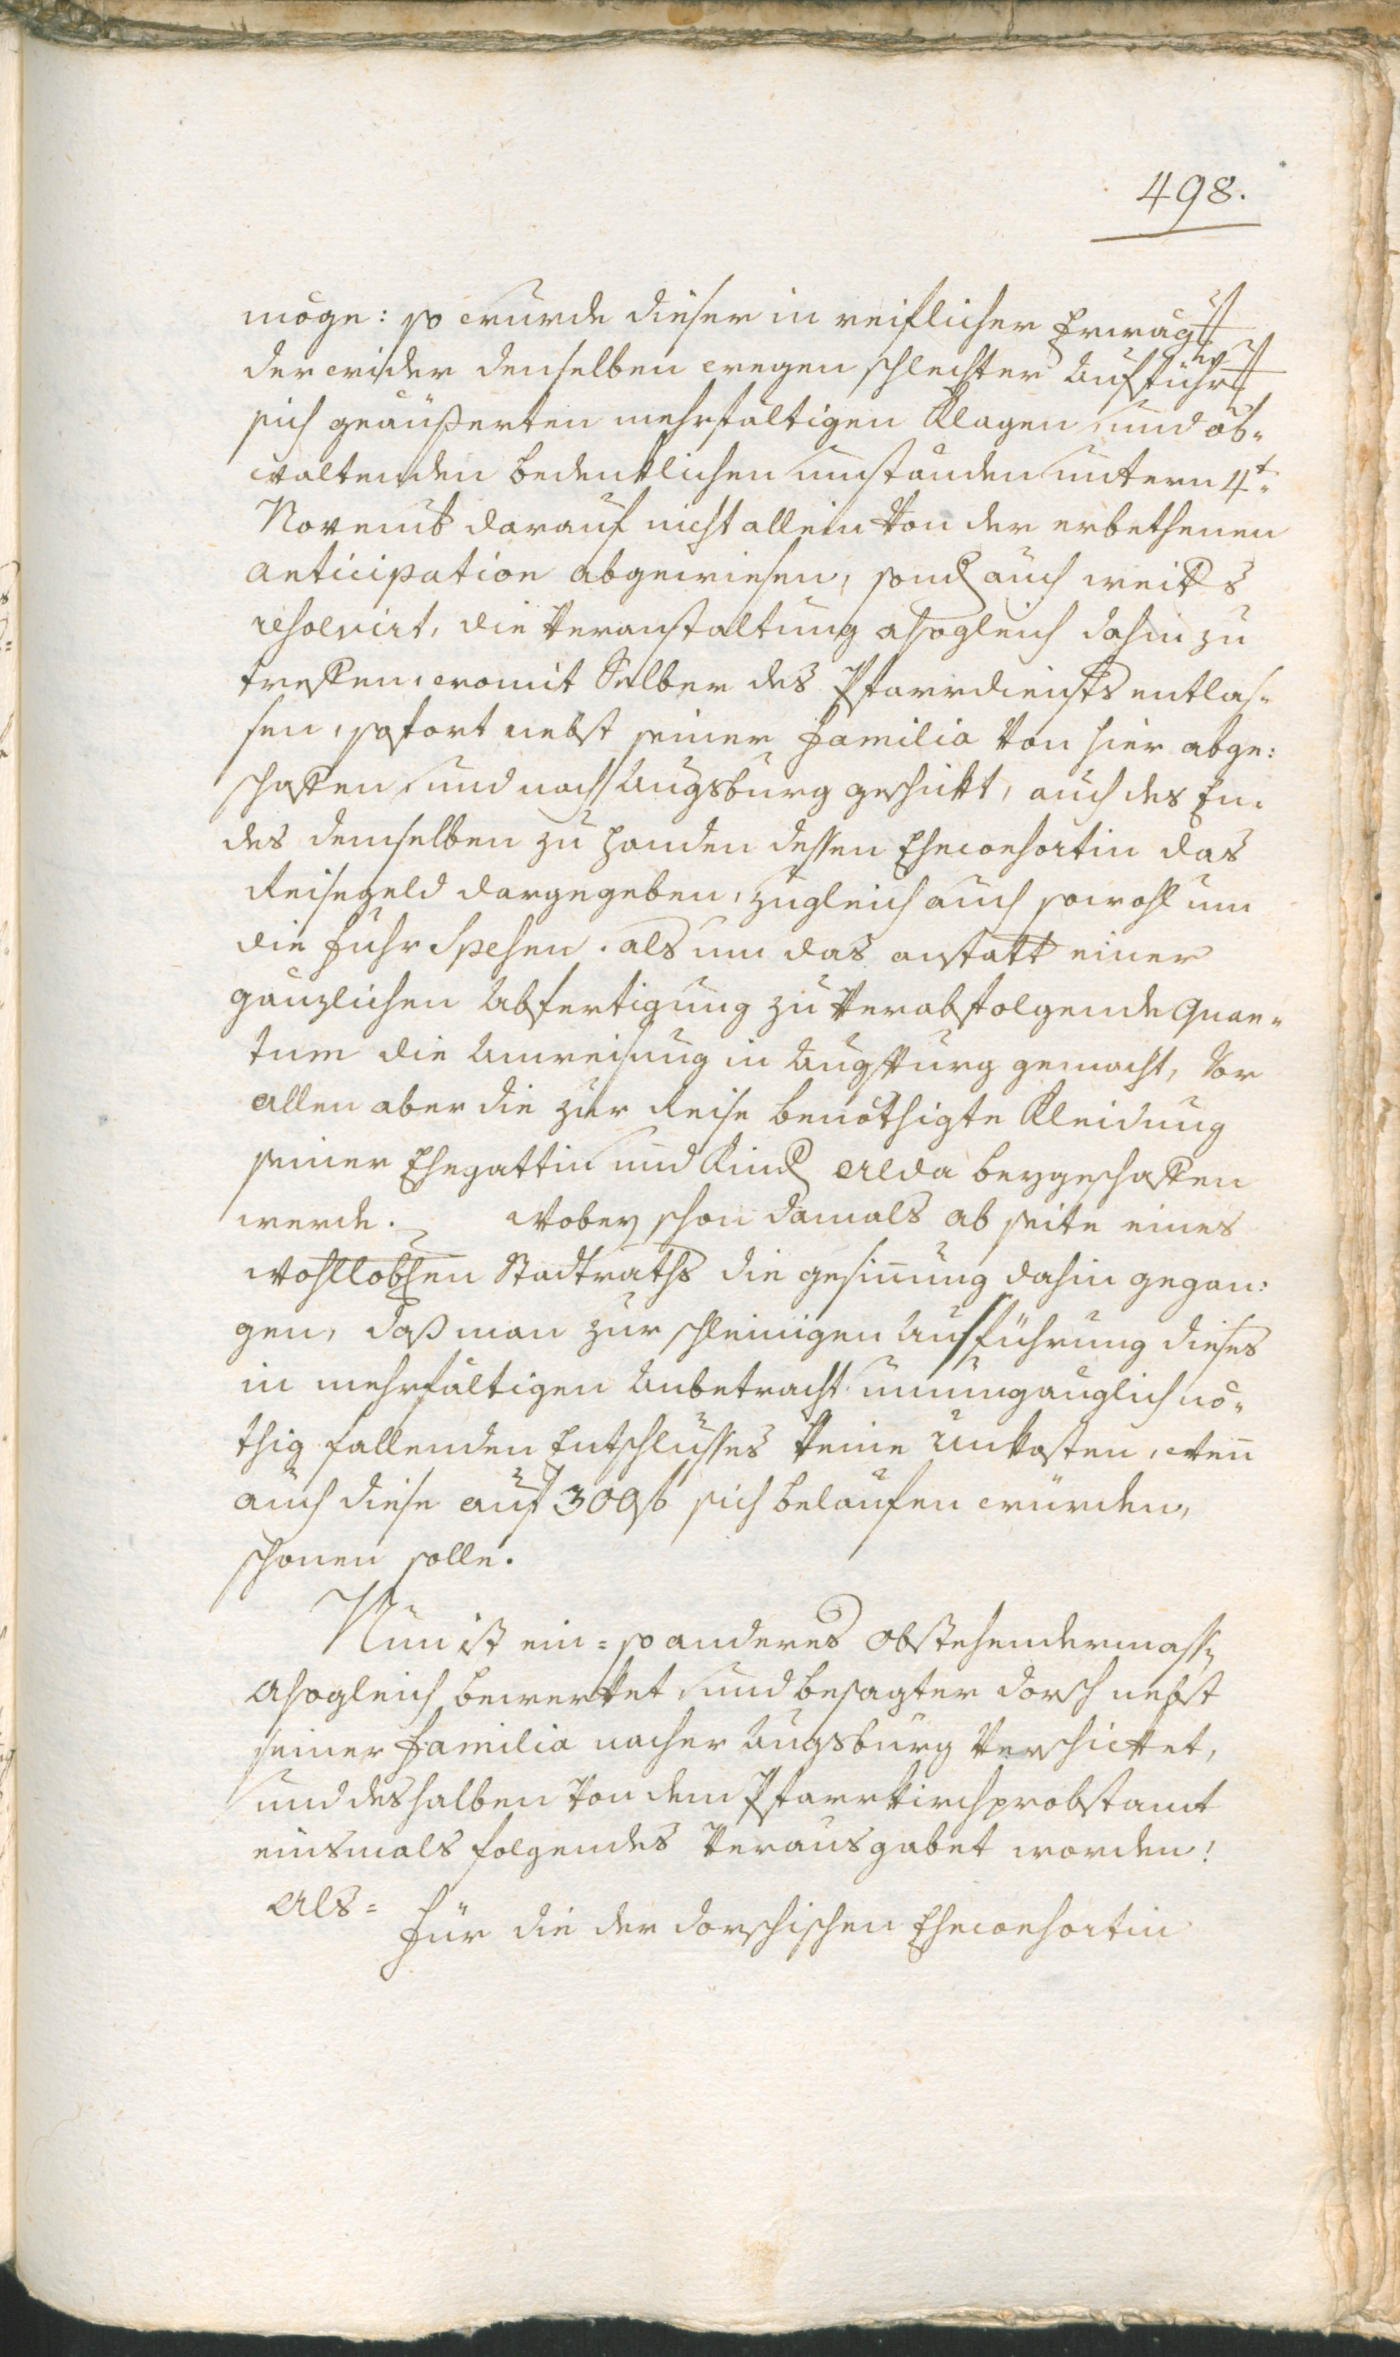 498.
möge: so wurde dieser in reiflicher Erwäg
der wider denselben wegen schlechter Aufführ
sich geäußerten mehrfältigen Klagen und ob-
waltenden bedenklichen umständen untern 4t.
Novemb darauf nicht allein von der erbethenen
anticipation abgewiesen, sond auch weiters
resolvirt, die veranstaltung alsogleich dahin zu
treffen, womit Selber des Pfarrdiensts entlas-
sen, sofort nebst seiner familia von hier abge:
schaffen und nach Augsburg geschikt, auch des En-
des demselben zu handen dessen Eheconsortin das
Reisegeld dargegeben, zugleich auch sowohl um
die fuhr Spesen, als um das anstatt einer
gänzlichen Abfertigung zu verabfolgende Quan-
tum die Anweisung in Augspurg gemacht, vor
allen aber die zur Reise benöthigte Kleidung
seiner Ehegattin und Kind alda beygeschaffen
werde. Wobey schon damals ab seite eines
wohllobhen Stadtraths die gesinnung dahin gegan:
gen, daß man zur schleinigen Ausführung dieses
in mehrfältigen Anbetracht unumgänglich nö-
thig fallenden Entschlusses keine Unkosten, wenn
auch diese auf 300f sich belaufen würden,
schonen solle.
Nun ist ein= so anderes obstehendermassen
alsogleich bewerket und besagter dorsch nebst
seiner familia nacher Augsburg verschicket,
und deshalben von dem Pfarrkirchprobstamt
einsmals folgendes verausgabet worden!
Als=
für die der dorschischen Eheconsortin